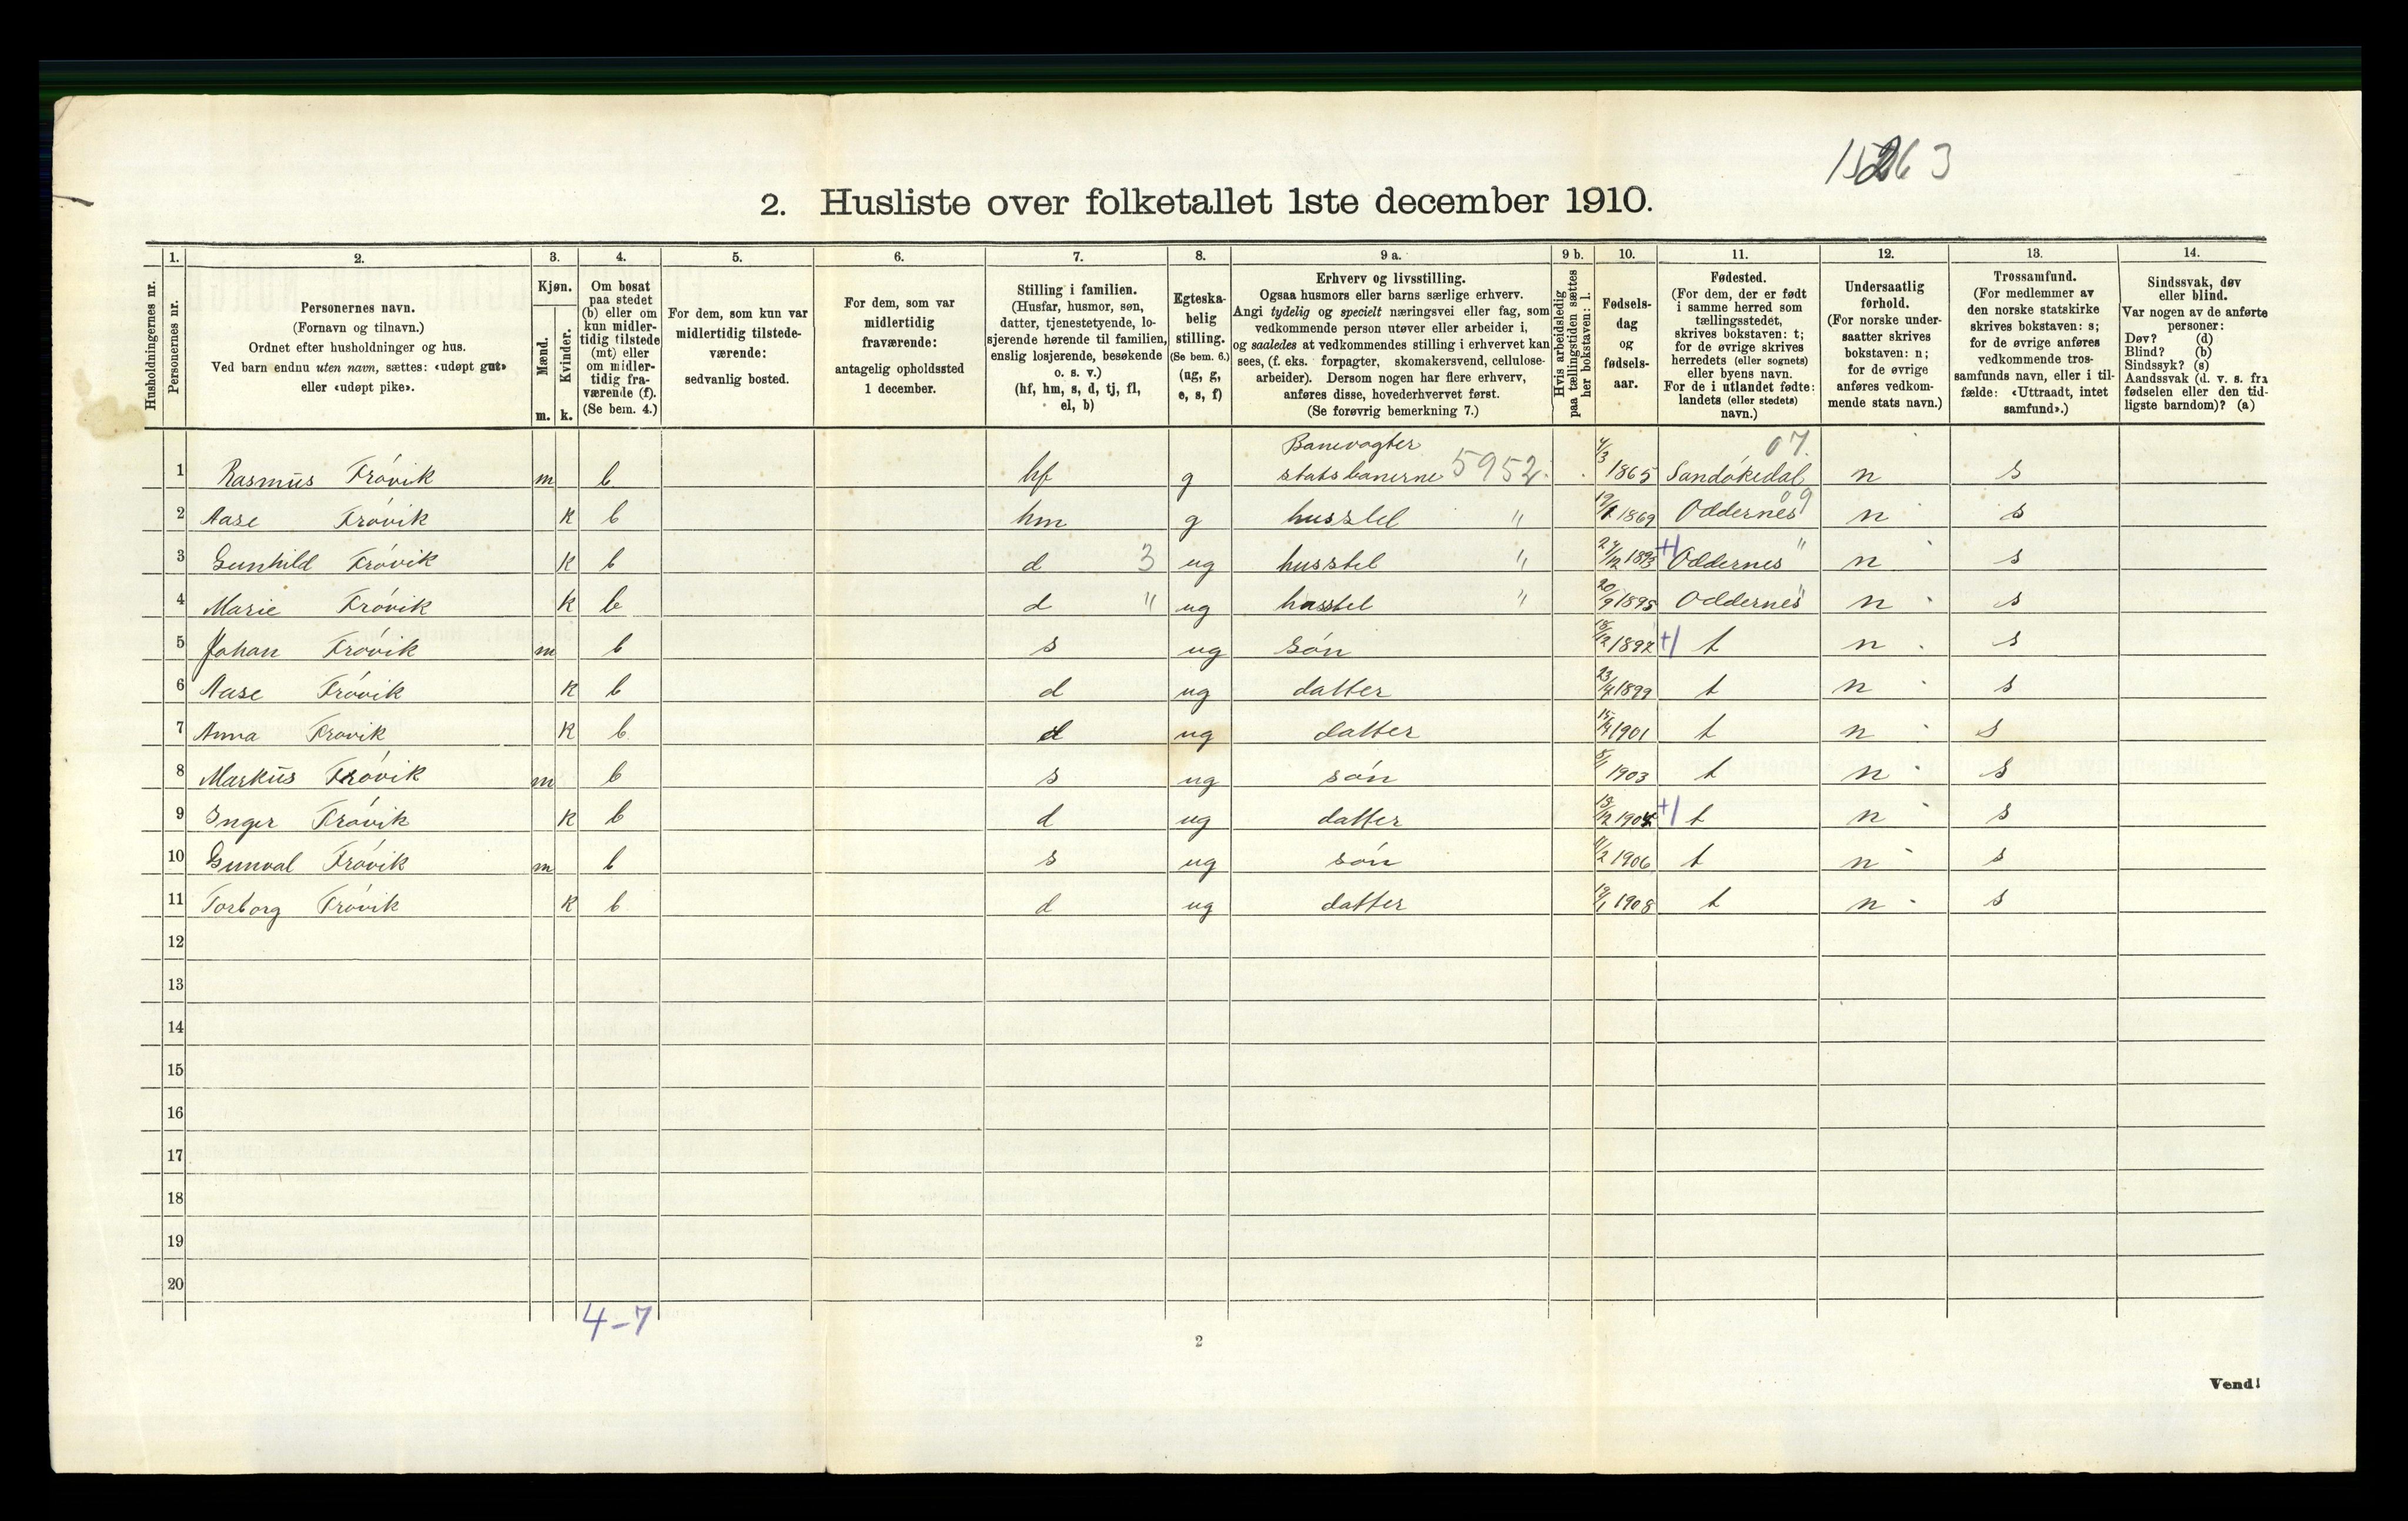 15263
2. Husliste over folketallet 1ste december 1910.
Husholdningernes nr.
1. Personernes nr.
2. Personernes navn.
(Fornavn og tilnavn.)
Ordnet efter husholdninger og hus.
Ved barn endnu uten navn, sættes: «udøpt gut»
eller «udøpt pike».
3. Kjøn.
Mænd. m.
Kvinder. k.
4. Om bosat
paa stedet
(b) eller om
kun midler-
tidig tilstede
(mt) eller
om midler-
tidig fra-
værende (f).
(Se bem. 4.)
5. For dem, som kun var
midlertidig tilstede-
værende:
sedvanlig bosted.
6. For dem, som var
midlertidig
fraværende:
antagelig opholdssted
1 december.
7. Stilling i familien.
(Husfar, husmor, søn,
datter, tjenestetyende, lo-
sjerende hørende til familien,
enslig losjerende, besøkende
o. s. v.)
(hf, hm, s, d, tj, fl,
el, b)
8. Egteska-
belig
stilling.
(Se bem. 6.)
(ug, g,
e, s, f)
9 a. Erhverv og livsstilling.
Ogsaa husmors eller barns særlige erhverv.
Angi tydelig og specielt næringsvei eller fag, som
vedkommende person utøver eller arbeider i,
og saaledes at vedkommendes stilling i erhvervet kan
sees, (f. eks. forpagter, skomakersvend, cellulose-
arbeider). Dersom nogen har flere erhverv,
anføres disse, hovederhvervet først.
(Se forøvrig bemerkning 7.)
9 b. Hvis arbeidsledig
paa tællingstiden sættes
her bokstaven: l.
10. Fødsels-
dag
og
fødsels-
aar.
11. Fødested.
(For dem, der er født
i samme herred som
tællingsstedet,
skrives bokstaven: t;
for de øvrige skrives
herredets (eller sognets)
eller byens navn.
For de i utlandet fødte:
landets (eller stedets)
navn.)
12. Undersaatlig
forhold.
(For norske under-
saatter skrives
bokstaven: n;
for de øvrige
anføres vedkom-
mende stats navn.)
13. Trossamfund.
(For medlemmer av
den norske statskirke
skrives bokstaven: s;
for de øvrige anføres
vedkommende tros-
samfunds navn, eller i til-
fælde: «Uttraadt, intet
samfund».)
14. Sindssvak, døv
eller blind.
Var nogen av de anførte
personer:
Døv? (d)
Blind? (b)
Sindssyk? (s)
Aandssvak (d. v. s. fra
fødselen eller den tid-
ligste barndom)? (a)
Banevogter 07.
1 Rasmus Frövik m b hf g statsbanerne 5952. 4/3 1865 Sandökedal n s
2 Aase Frövik k b hm g husstel " 1869 Oddernes 09 n s
3 Gunhild Frövik k b d 3 ug husstel " 24/12 1893 +1 Oddernes " n s
4 Marie Frövik k b d " ug husstel " 20/9 1895 Oddernes " n s
5 Johan Frövik m b s ug sön 18/12 1897 +1 t n s
6 Aase Frövik k b d ug datter 1899 t n s
7 Anna Frovik k b d ug datter 1901 t n s
8 Markus Frövik m b s ug sön 1903 t n s
9 Inger Frövik k b d ug datter 19/12 1904 +1 t n s
10 Gunval Frövik m b s ug sön 11/2 1906 t n s
11 Torborg Frövik k b d ug datter 19/1 1908 t n s
12
13
14
15
16
17
18
19
20
4-7
2
Vend!